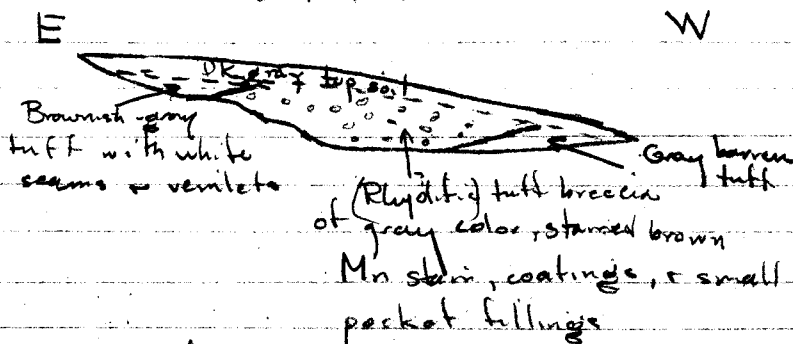 E
W
Dk gray top soil
Brownish-gray
tuff with white
seams & venilets
Gray barren
tuff
(Rhyolitic) tuff breccia
of gray color, stained brown
Mn stain, coatings, & small
pocket fillings